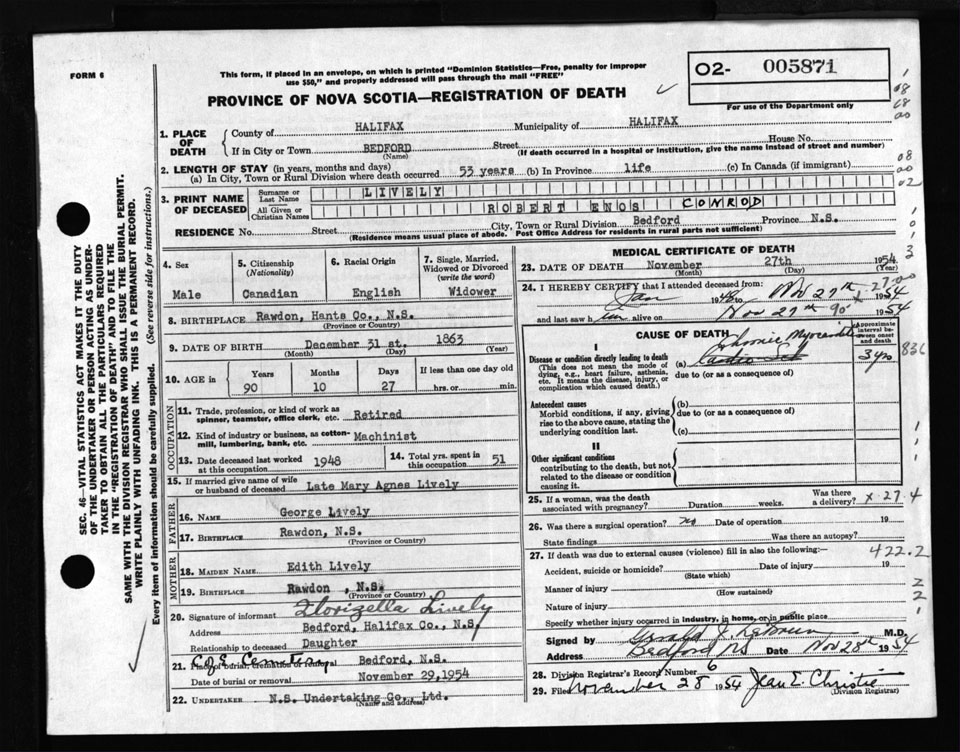 FORM 6
This form, if placed in an envelope, on which is printed "Dominion Statistics—Free, penalty for improper
use $50," and properly addressed will pass through the mail "FREE"
O2- 005871
For use of the Department only
PROVINCE OF NOVA SCOTIA—REGISTRATION OF DEATH
1. PLACE OF DEATH
County of HALIFAX Municipality of HALIFAX
If in City or Town BEDFORD Street House No.
(Name) (If death occurred in a hospital or institution, give the name instead of street and number)
2. LENGTH OF STAY (in years, months and days)
(a) In City, Town or Rural Division where death occurred 53 years (b) In Province life (c) In Canada (if immigrant)
3. PRINT NAME OF DECEASED
Surname or Last Name LIVELY
All Given or Christian Names ROBERT ENOS CONROD
RESIDENCE No. Street City, Town or Rural Division Bedford Province N.S.
(Residence means usual place of abode. Post Office Address for residents in rural parts not sufficient)
4. Sex
Male
5. Citizenship (Nationality)
Canadian
6. Racial Origin
English
7. Single, Married, Widowed or Divorced (write the word)
Widower
8. BIRTHPLACE Rawdon, Hants Co., N.S.
(Province or Country)
9. DATE OF BIRTH December 31 st. 1863
(Month) (Day) (Year)
10. AGE in
Years Months Days If less than one day old
90 10 27 hrs. or min.
OCCUPATION
11. Trade, profession, or kind of work as spinner, teamster, office clerk, etc. Retired
12. Kind of industry or business, as cotton-mill, lumbering, bank, etc. Machinist
13. Date deceased last worked at this occupation 1948
14. Total yrs. spent in this occupation 51
15. If married give name of wife or husband of deceased Late Mary Agnes Lively
FATHER
16. NAME George Lively
17. BIRTHPLACE Rawdon, N.S.
(Province or Country)
MOTHER
18. MAIDEN NAME Edith Lively
19. BIRTHPLACE Rawdon, N.S.
(Province or Country)
20. Signature of informant Florizella Lively
Address Bedford, Halifax Co., N.S.
Relationship to deceased Daughter
21. Place of burial, cremation or removal C of E Cemetery Bedford, N.S.
Date of burial or removal November 29,1954
22. UNDERTAKER N.S. Undertaking Co., Ltd.
(Name and address)
MEDICAL CERTIFICATE OF DEATH
23. DATE OF DEATH November 27th 1954
(Month) (Day) (Year)
24. I HEREBY CERTIFY that I attended deceased from:
Jan 1948 to Nov 27th 1954
and last saw him alive on Nov 27th 1954
CAUSE OF DEATH
Approximate interval between onset and death
I
Disease or condition directly leading to death
(This does not mean the mode of dying, e.g., heart failure, asthenia, etc. It means the disease, injury, or complication which caused death.)
(a) Chronic
due to (or as a consequence of)
3 yrs
Antecedent causes
Morbid conditions, if any, giving rise to the above cause, stating the underlying condition last.
(b)
due to (or as a consequence of)
(c)
II
Other significant conditions
contributing to the death, but not related to the disease or condition causing it.
25. If a woman, was the death associated with pregnancy? Duration weeks. Was there a delivery?
x 27.4
26. Was there a surgical operation? Date of operation 19
State findings Was there an autopsy?
27. If death was due to external causes (violence) fill in also the following:—
422.2
Accident, suicide or homicide? Date of injury 19
(State which)
Manner of injury
(How sustained)
Nature of injury
Specify whether injury occurred in industry, in home, or in public place
Signed by M.D.
Address Bedford NS Date Nov 28th 1954
28. Division Registrar's Record Number 6
29. Filed November 28 1954 Jean E. Christie
(Division Registrar)
SEC. 46—VITAL STATISTICS ACT MAKES IT THE DUTY
OF THE UNDERTAKER OR PERSON ACTING AS UNDER-
TAKER TO OBTAIN ALL THE PARTICULARS REQUIRED
IN THE "REGISTRATION OF DEATH" AND TO FILE THE
SAME WITH THE DIVISION REGISTRAR WHO SHALL ISSUE THE BURIAL PERMIT.
WRITE PLAINLY WITH UNFADING INK. THIS IS A PERMANENT RECORD.
Every item of information should be carefully supplied. (See reverse side for instructions.)